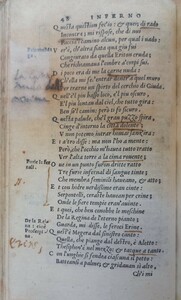 INFERNO
Questa question fec'io: & quei di rado
Incontra, mi rispose, che di nui
Faccia'l camino alcun, per qual i vado.
Ver'è, ch'altra fiata qua giu fui
Congiurato da quella Eriton cruda,
Che richiamava l'ombre a corpi sui.
Di poco era di me la carne nuda;
Ch'ella mi fece intrar dentr'a quel muro
Per trarne un spirto del cerchio di Giuda.
Quell'è'l piu basso loco, e'l piu oscuro,
E'l piu lontan dal ciel, che tutto gira:
Ben so'l camin: però ti fa sicuro.
Questa palude, che'l gran puzzo spira,
Cinge d'intorno la citta dolente;
U non potemo intrar homai senz'ira.
Et altro disse: ma non l'ho a mente;
Però che l'occhio m'havea tutto tratto
Ver l'alta torre a la cima rovente;
Tre furie infernal di sangue tinte;
Che membra feminili havean, & atto;
Et con hydre verdissime eran cinte:
Serpentelli, & ceraste havean per crine,
Onde le fiere tempie eran avinte.
E quei, che ben conobbe le meschine
De la Regina de l'eterno pianto;
Guarda, mi disse, le feroci Erine.
Quest'è Megera dal sinistro canto:
Quella, che piange dal destro, è Aletto:
Thesiphone è nel mezzo: & tacque a tanto.
Con l'unghie si fendea ciascuna il petto:
Batteansi a palme, & gridavan si alto,
Ch'i mi